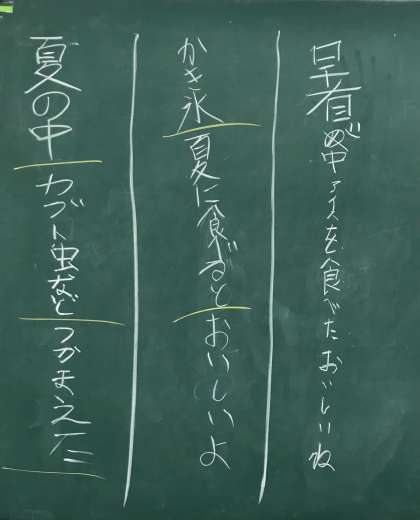 暑中アイスを食べたおいしいね
かき氷夏に食べるとおいしいよ
夏の中カブト虫などつかまえた